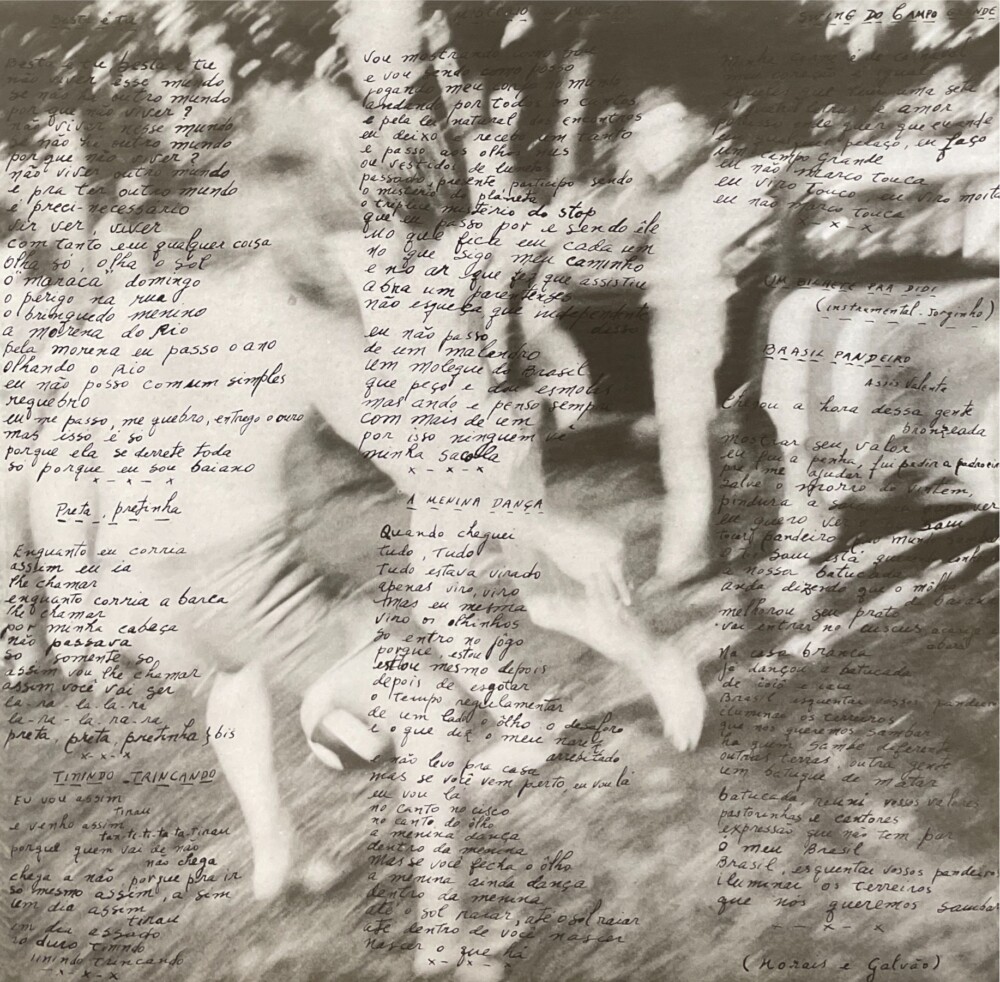 Besta é tu
Besta é tu besta é tu
não viver esse mundo
se não há outro mundo
por que não viver?
não viver nesse mundo
se não há outro mundo
por que não viver?
não viver outro mundo
e pra ter outro mundo
é preci-necessário
vir ver, viver
com tanto em qualquer coisa
olha só, olha o sol
o "maraca" domingo
o perigo na rua
o brinquedo menino
a morena do Rio
pela morena eu passo o ano
olhando o Rio
eu não posso com um simples
requebro
eu me passo, me quebro, entrego o ouro
mas isso é só
porque ela se derrete toda
só porque eu sou baiano
x - x - x
Preta, pretinha
Enquanto eu corria
assim eu ia
lhe chamar
enquanto corria a barca
lhe chamar
por minha cabeça
não passava
só somente só
assim vou lhe chamar
assim você vai ser
la-ra-la-la-ra
la-ra-la-ra-ra
preta, preta, pretinha } bis
x - x - x
TININDO TRINCANDO
Eu vou assim
tirau
e venho assim
tan-te-te-ta-ta-tirau
porque quem vai de não
não chega
chega a não porque pra ir
só mesmo assim, a sem
um dia assim
tirau
um dia assado
no duro tinindo
tinindo trincando
x - x - x
Vou mostrando como sou
e vou sendo como posso
jogando meu corpo no mundo
andando por todos os cantos
e pela lei natural dos encontros
eu deixo e recebo um tanto
e passo aos olhos nus
ou vestidos de lunetas
passado, presente, participo sendo
o mistério do planeta
o tríplice mistério do stop
que eu passo por e sendo êle
no que fica em cada um
no que sigo meu caminho
e no ar que fez que assistiu
abra um parênteses
não esqueça que independente
disso
eu não passo
de um malandro
um moleque do Brasil
que peço e dou esmolas
mas ando e penso sempre
com mais de um
por isso ninguém vê
minha sacolla
x - x - x
A MENINA DANÇA
Quando cheguei
tudo, tudo
tudo estava virado
apenas viro, viro
mas eu mesma
viro os olhinhos
só entro no jôgo
porque, estou
estou mesmo depois
depois de esgotar
o tempo regulamentar
de um lado o ôlho o desaforo
e o que diz o meu nariz
arrebitado
e não levo pra casa
mas se você vem perto, eu vou lá
eu vou lá
no canto no cisco
no canto do ôlho
a menina dança
dentro da menina
mas se você fecha o ôlho
a menina ainda dança
dentro da menina
até o sol raiar, até o sol raiar
até dentro de você nascer
nascer o que há
x - x - x
SWING DO CAMPO GRANDE
eu não marco touca
eu viro touca, eu viro moita
eu não marco touca
x - x
UM BILHETE PRA DIDI
(instrumental - Jorginho)
BRASIL PANDEIRO
Assis Valente
Chegou a hora dessa gente
bronzeada
mostrar seu valor
eu fui a penha, fui pedir a padroeira
pra me ajudar
salve o morro do vintem,
anda dizendo que o môlho
melhorou seu prato
Na casa branca
já dançou a batucada
de ioiô e iaiá
Brasil esquentai vossos pandeiros
iluminai os terreiros
que nós queremos sambar
há quem sambe diferente
outras terras, outra gente
um batuque de matar
batucada, reuni vossos valores
pastorinhas e cantores
expressão que não tem par
o meu Brasil
Brasil, esquentai vossos pandeiros
iluminai os terreiros
que nós queremos sambar
- x - x
(Morais e Galvão)